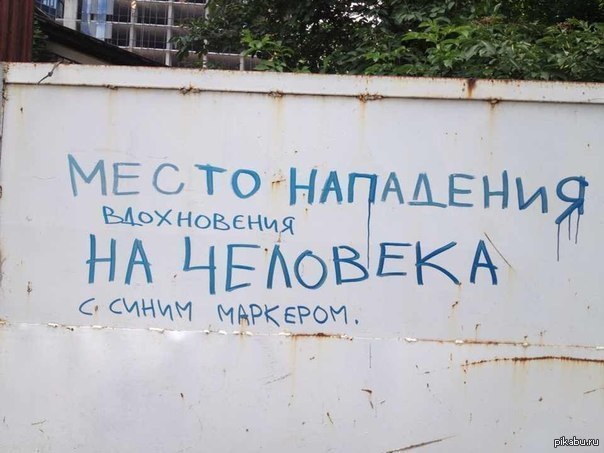 МЕСТО НАПАДЕНИЯ
ВДОХНОВЕНИЯ
НА ЧЕЛОВЕКА
С СИНИМ МАРКЕРОМ.
pikabu.ru